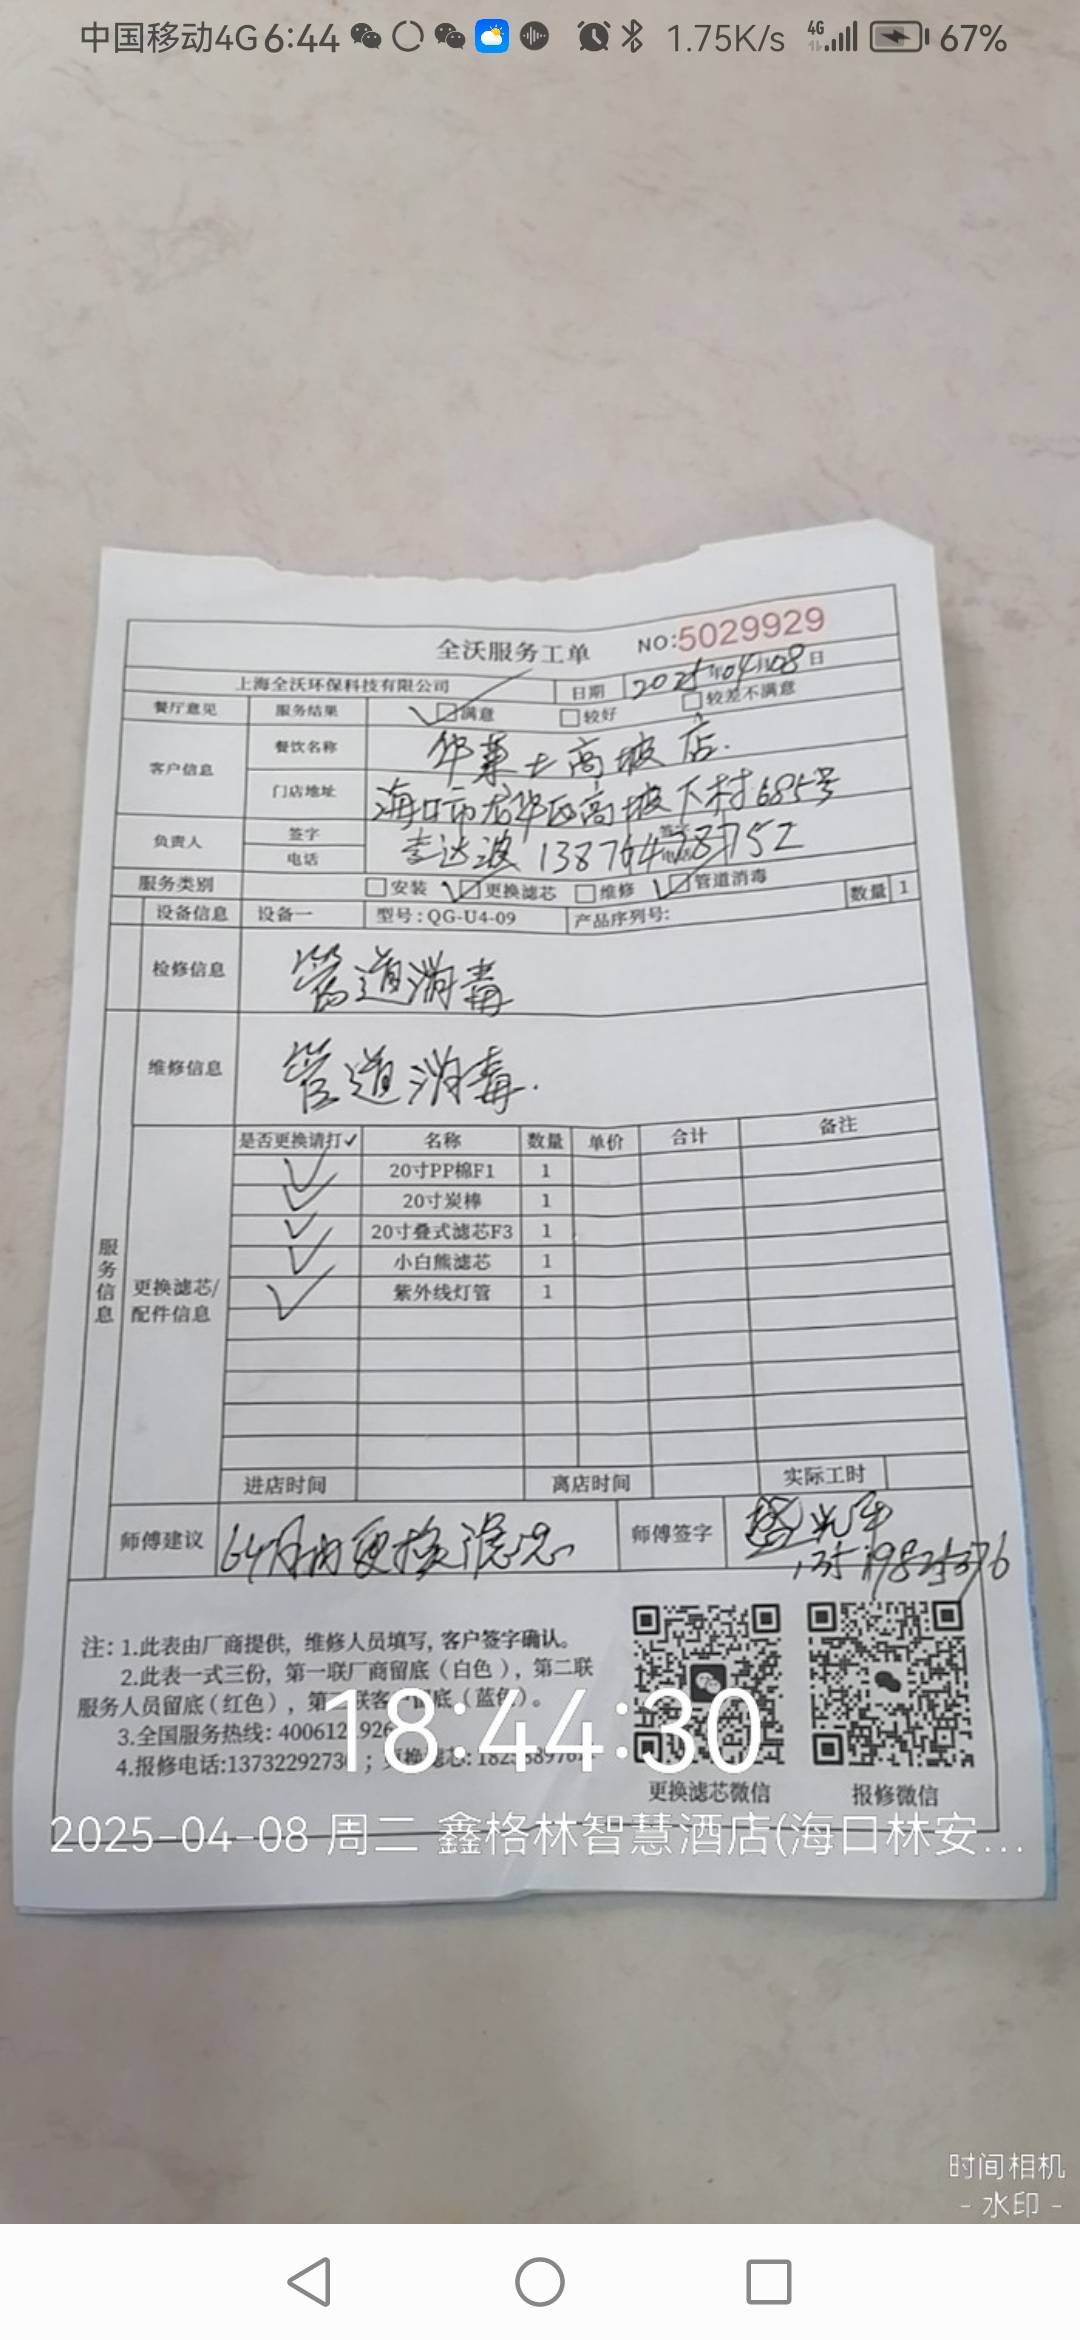 中国移动4G 6:44 1.75K/s 4G 67%
全沃服务工单 NO:5029929
上海全沃环保科技有限公司 日期 2025年04月08日
餐厅意见 服务结果 满意 较好 较差不满意
客户信息 餐饮名称 华莱士高坡店.
门店地址 海口市龙华区高坡下村685号
负责人 签字 李达波
电话 13876428752
服务类别 安装 更换滤芯 维修 管道消毒 数量 1
设备信息 设备一 型号:QG-U4-09 产品序列号:
检修信息 管道消毒
维修信息 管道消毒.
服务信息
更换滤芯/配件信息
是否更换请打✓ 名称 数量 单价 合计 备注
✓ 20寸PP棉F1 1
✓ 20寸炭棒 1
✓ 20寸叠式滤芯F3 1
✓ 小白熊滤芯 1
✓ 紫外线灯管 1
进店时间 离店时间 实际工时
师傅建议 6个月内更换滤芯 师傅签字
注: 1.此表由厂商提供, 维修人员填写, 客户签字确认。
2.此表一式三份, 第一联厂商留底(白色), 第二联
服务人员留底(红色), 第三联客户留底(蓝色)。
3.全国服务热线:
4.报修电话: ; 更换滤芯:
更换滤芯微信 报修微信
18:44:30
2025-04-08 周二 鑫格林智慧酒店(海口林安...
时间相机
- 水印 -